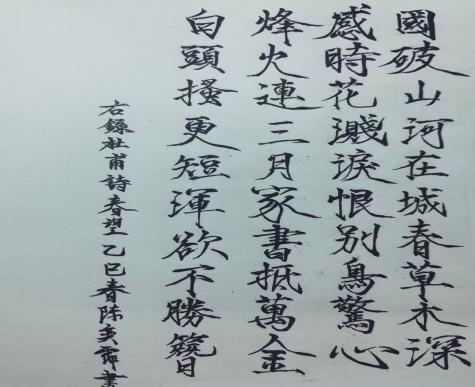 國破山河在城春草木深
感時花濺淚恨別鳥驚心
烽火連三月家書抵萬金
白頭搔更短渾欲不勝簪
右錄杜甫詩春望乙巳春陳英霈書